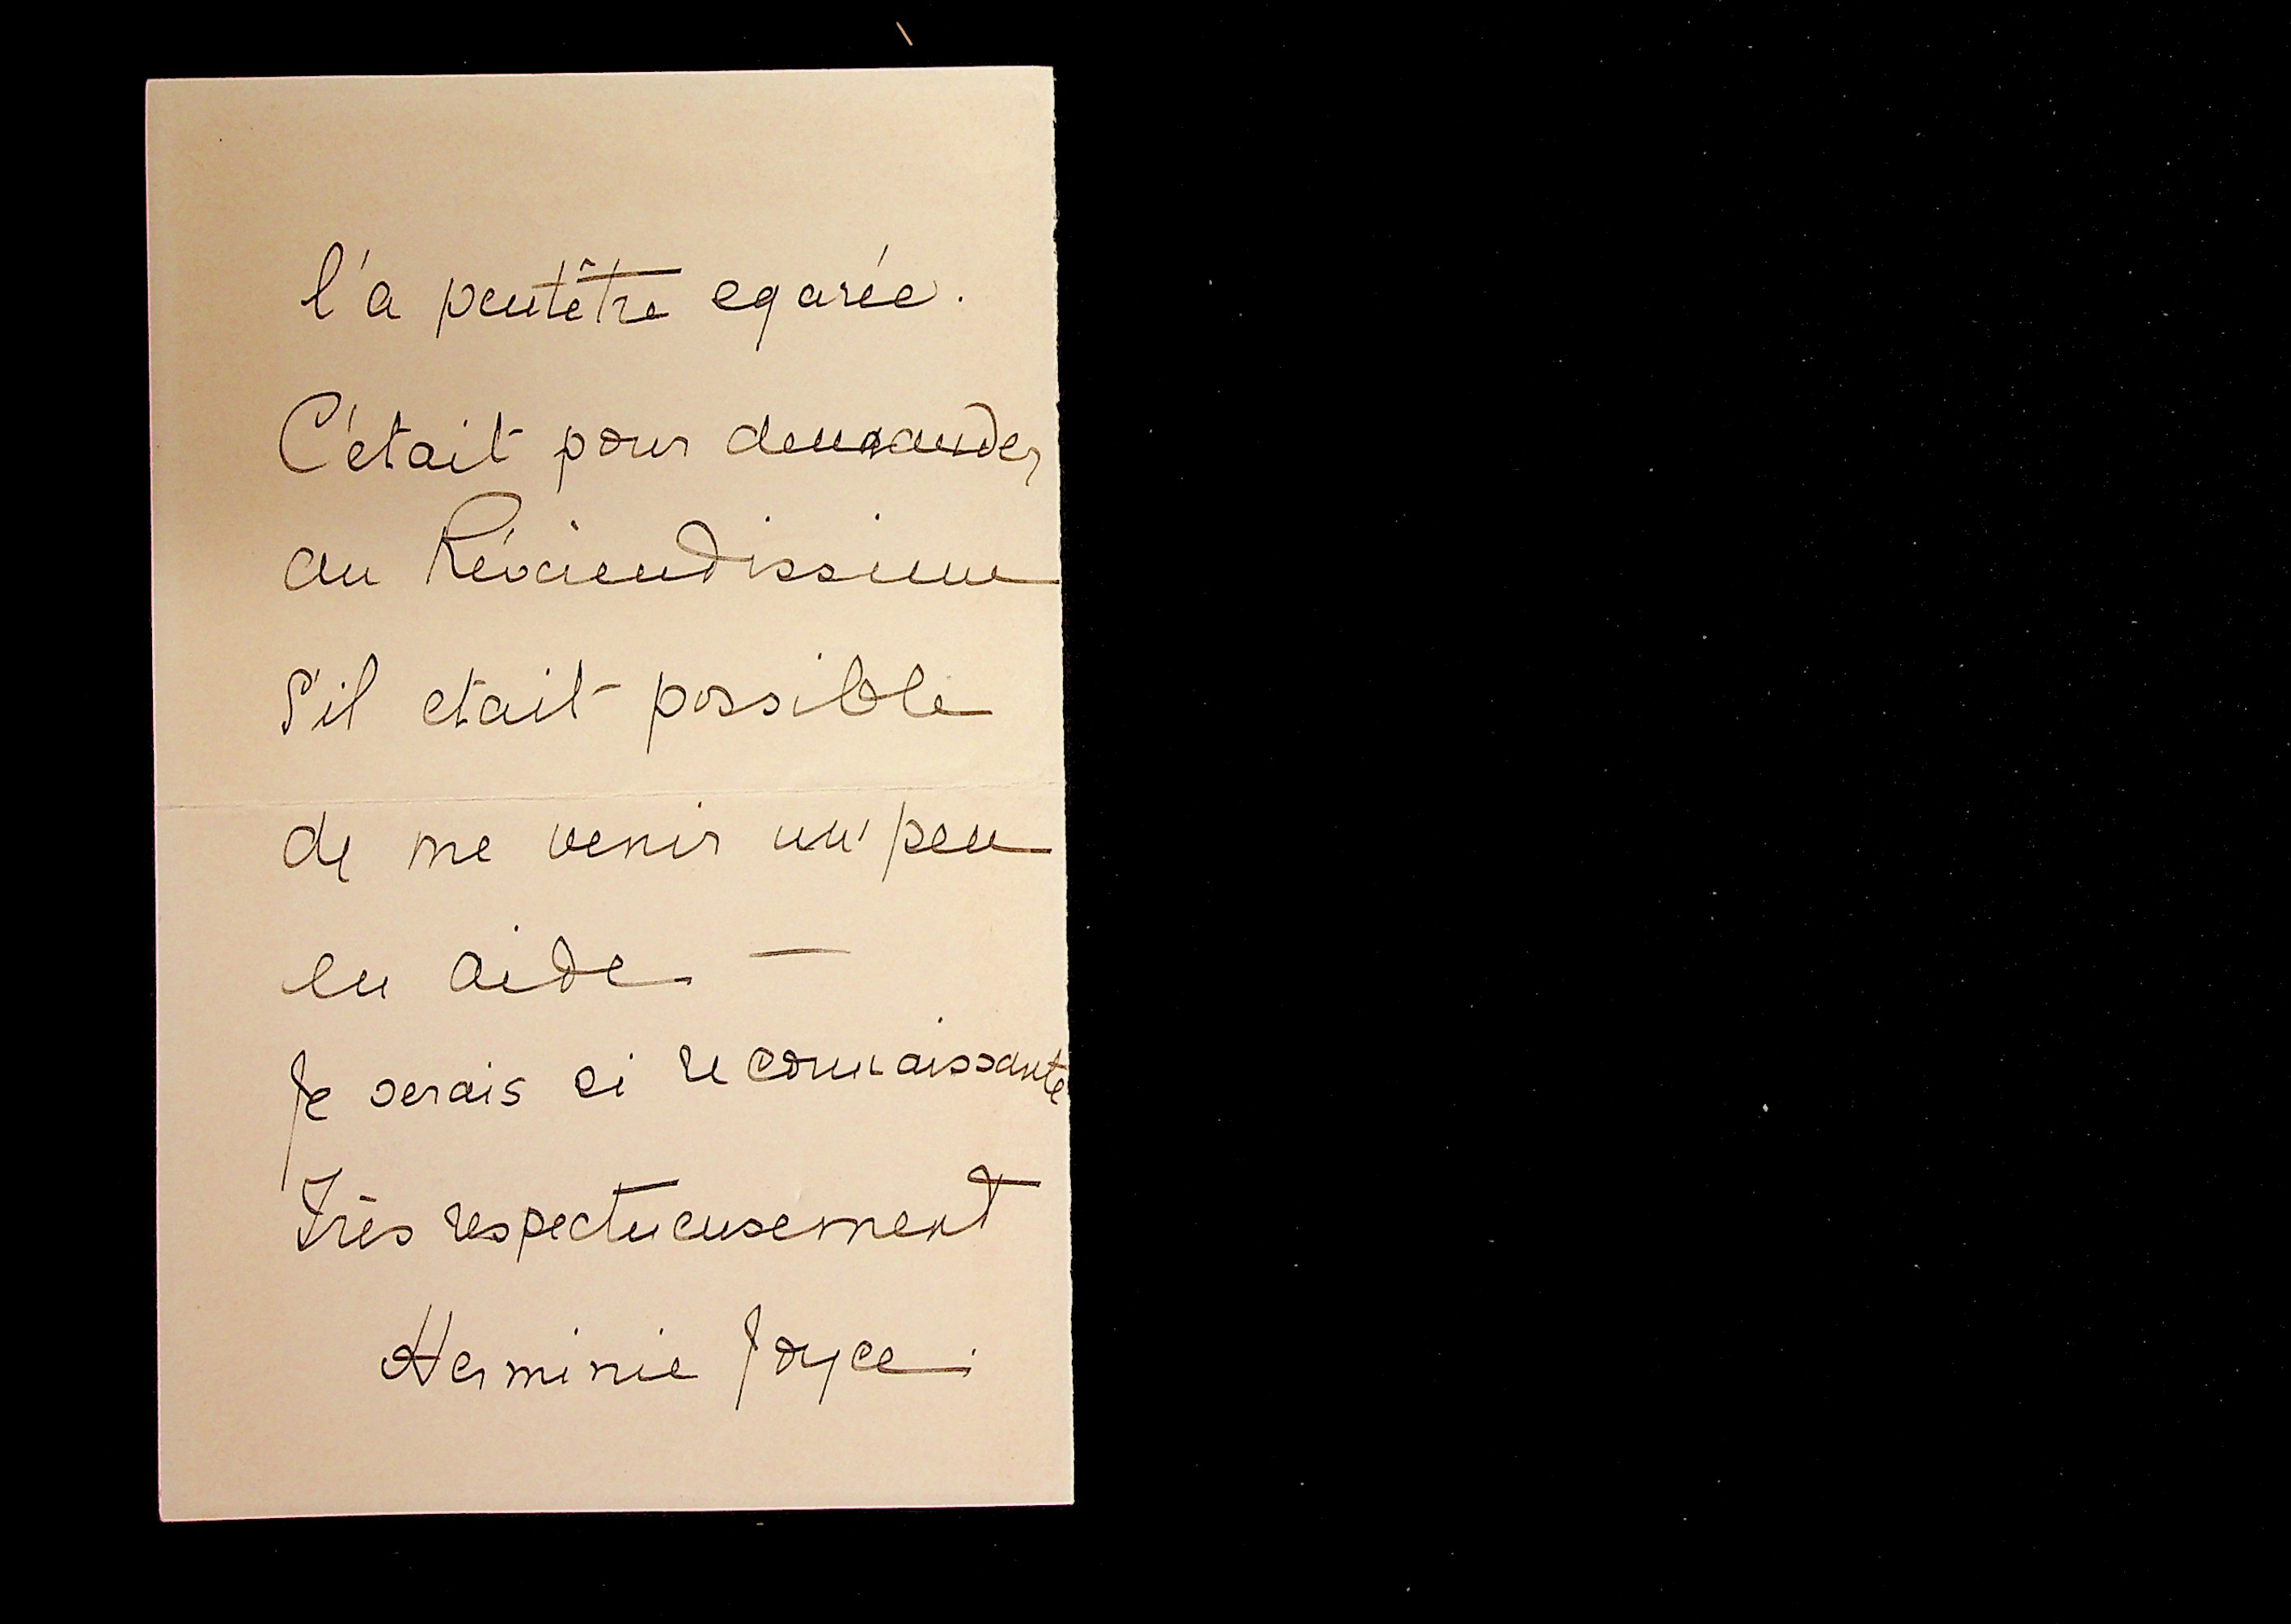 l'a peutêtre egarée.
C'était pour demander
au Révérendissime
S'il etait possible
de me venir un peu
en aide —
Je serais si reconnaissante
Très respectueusement
Herminie Joyce.